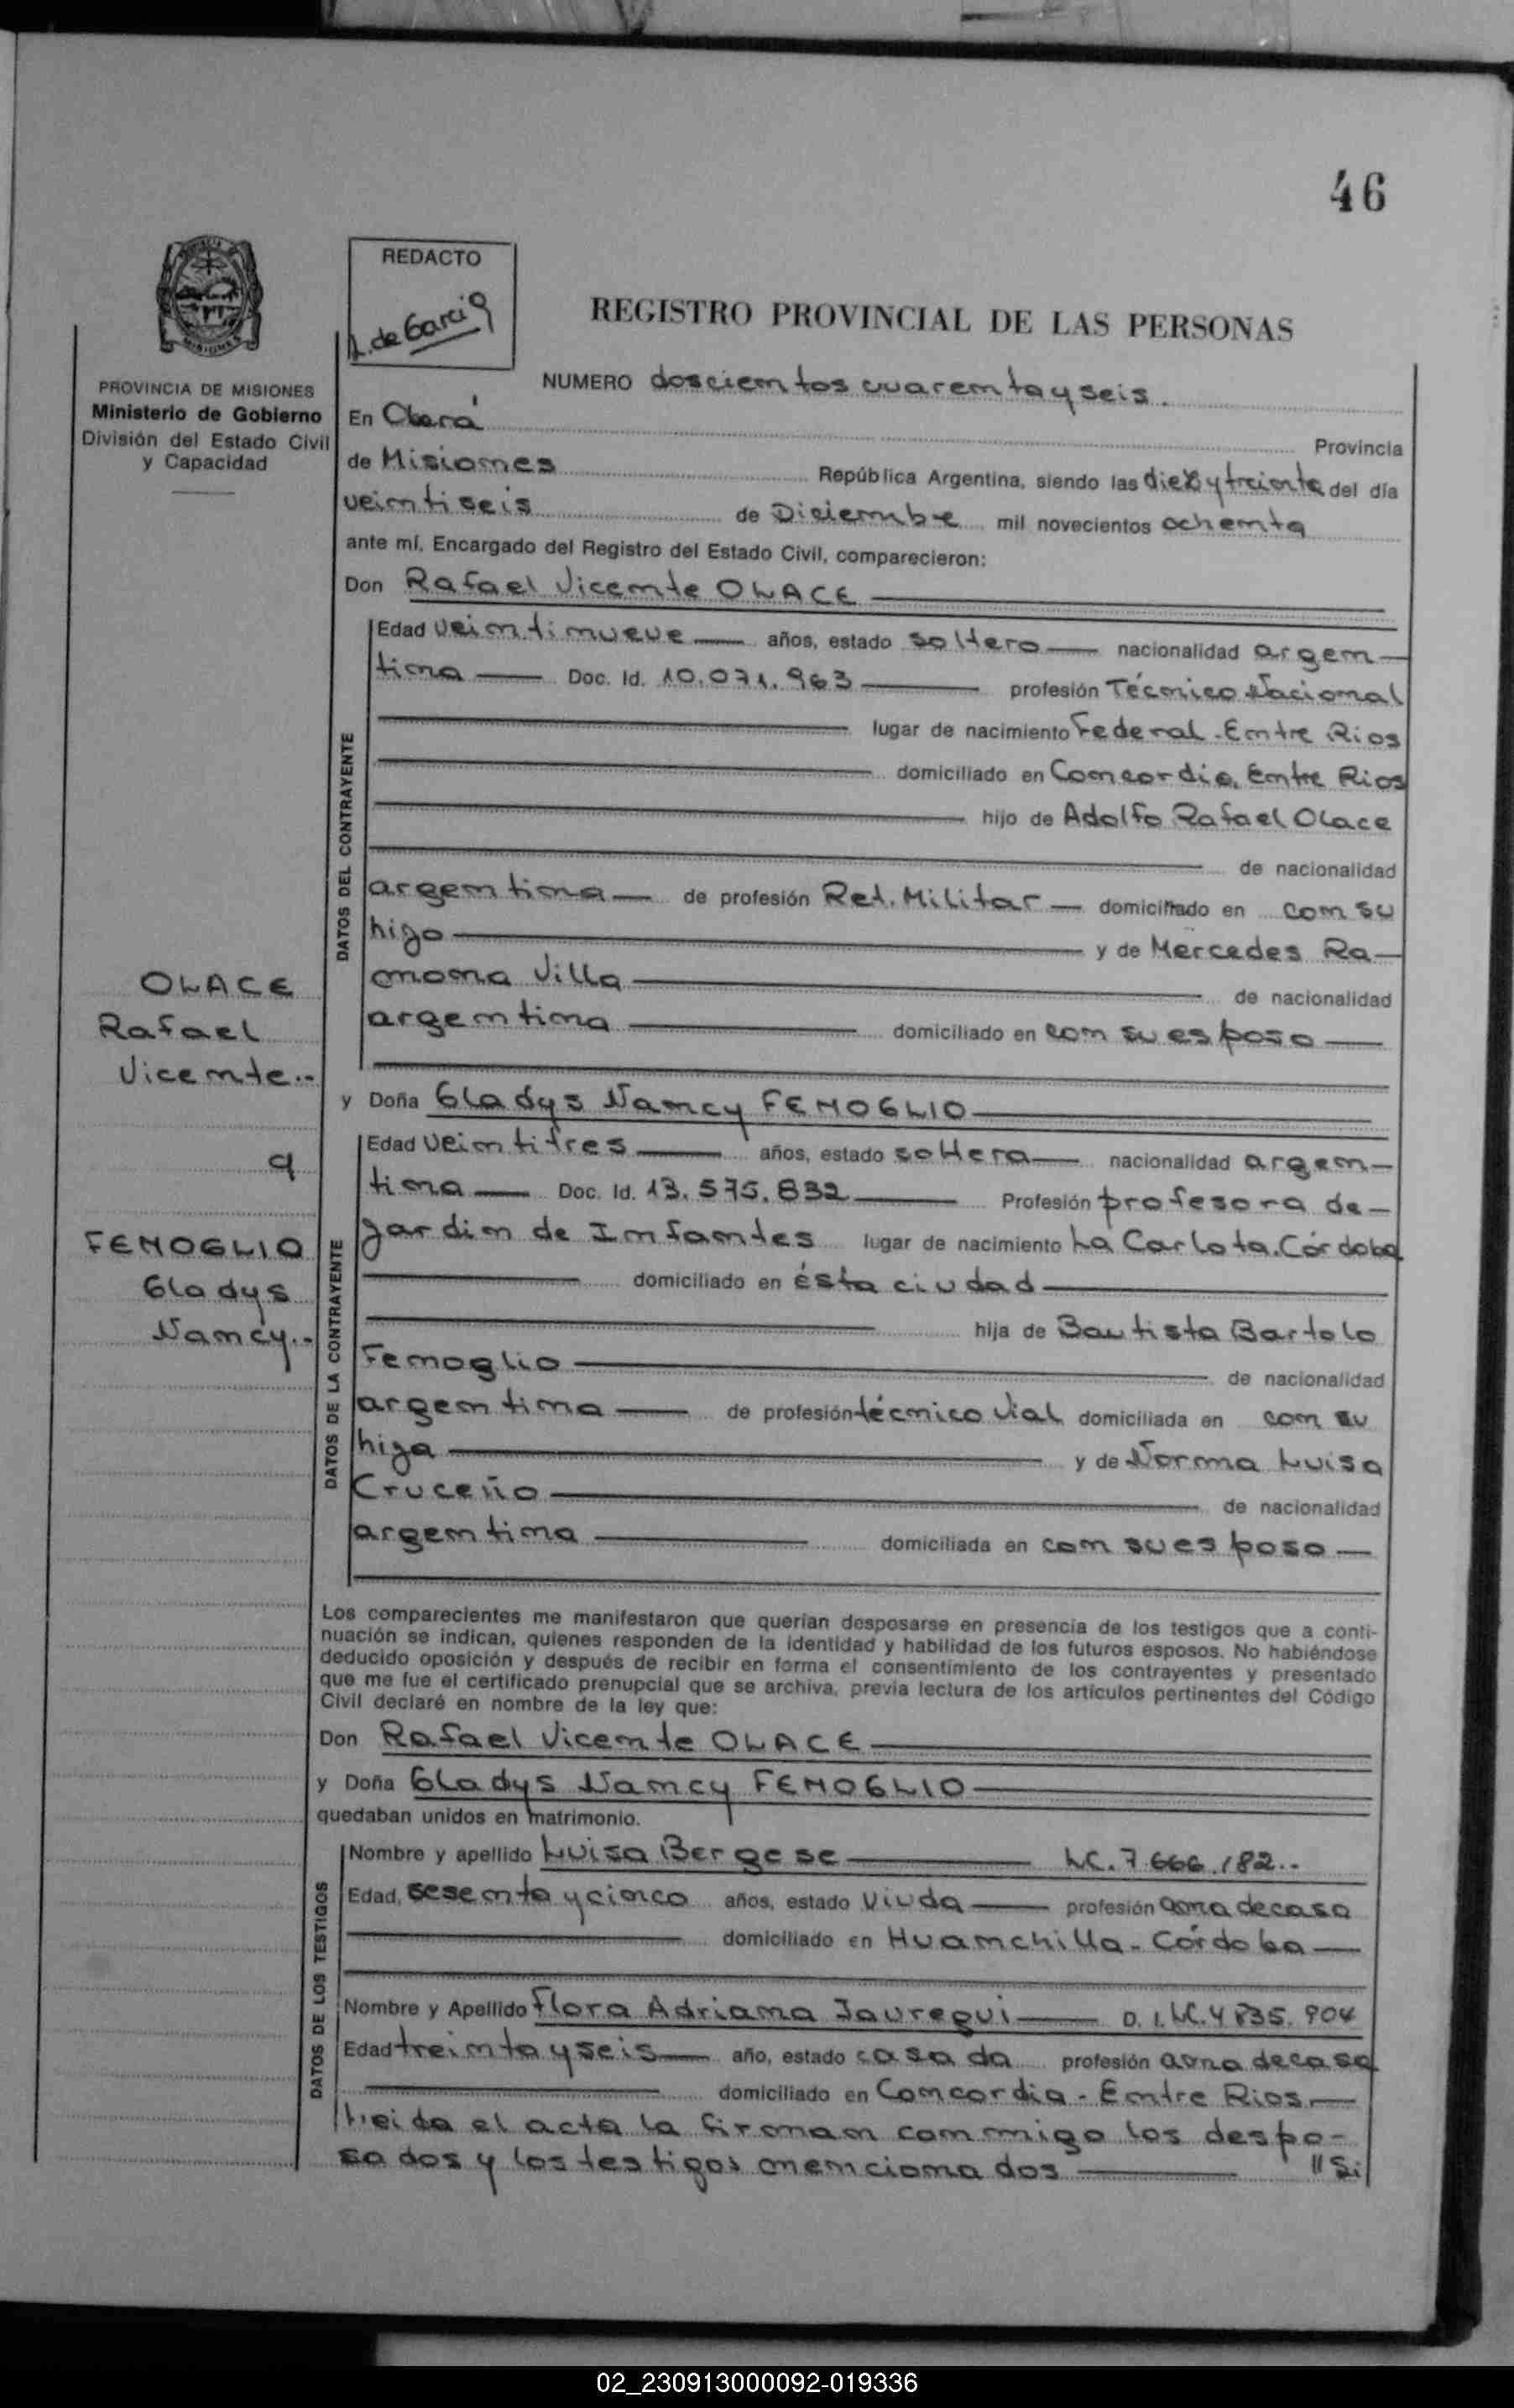 46
REDACTO
A. de Garcia
REGISTRO PROVINCIAL DE LAS PERSONAS
MISIONES
PROVINCIA DE MISIONES
Ministerio de Gobierno
División del Estado Civil
y Capacidad
NUMERO doscientos cuarenta y seis.
En Oberá Provincia
de Misiones República Argentina, siendo las diez y treinta del día
veintiseis de Diciembre mil novecientos ochenta
ante mí, Encargado del Registro del Estado Civil, comparecieron:
Don Rafael Vicente OLACE
DATOS DEL CONTRAYENTE
Edad veintinueve años, estado soltero nacionalidad argen-
tina Doc. Id. 10.071.963 profesión Técnico Nacional
lugar de nacimiento Federal - Entre Rios
domiciliado en Concordia. Entre Rios
hijo de Adolfo Rafael Olace
de nacionalidad
argentina de profesión Ret. Militar domiciliado en con su
hijo y de Mercedes Ra-
mona Villa de nacionalidad
argentina domiciliado en con su esposo
OLACE
Rafael
Vicente..
y
FENOGLIO
Gladys
Nancy..
y Doña Gladys Nancy FENOGLIO
DATOS DE LA CONTRAYENTE
Edad veintitres años, estado soltera nacionalidad argen-
tina Doc. Id. 13.575.832 Profesión profesora de-
Jardin de Infantes lugar de nacimiento La Carlota. Córdoba
domiciliado en ésta ciudad
hija de Bautista Bartolo
Fenoglio de nacionalidad
argentina de profesión técnico vial domiciliada en con su
hija y de Norma Luisa
Cruceño de nacionalidad
argentina domiciliada en con su esposo
Los comparecientes me manifestaron que querían desposarse en presencia de los testigos que a conti-
nuación se indican, quienes responden de la identidad y habilidad de los futuros esposos. No habiéndose
deducido oposición y después de recibir en forma el consentimiento de los contrayentes y presentado
que me fue el certificado prenupcial que se archiva, previa lectura de los artículos pertinentes del Código
Civil declaré en nombre de la ley que:
Don Rafael Vicente OLACE
y Doña Gladys Nancy FENOGLIO
quedaban unidos en matrimonio.
DATOS DE LOS TESTIGOS
Nombre y apellido Luisa Bergese LC. 7.666.182..
Edad, sesenta y cinco años, estado viuda profesión ama de casa
domiciliado en Huanchilla - Córdoba
Nombre y Apellido Flora Adriana Jauregui D. I. LC. 4 835. 904
Edad treinta y seis año, estado casada profesión ama de casa
domiciliado en Concordia - Entre Rios
Leida el acta la firman conmigo los despo-
sados y los testigos mencionados "Si
02_230913000092-019336